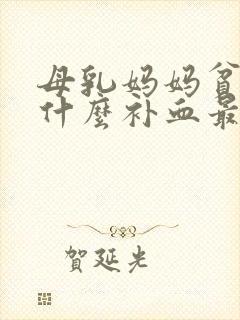 母乳妈妈贫
什麼补血最
賀延光